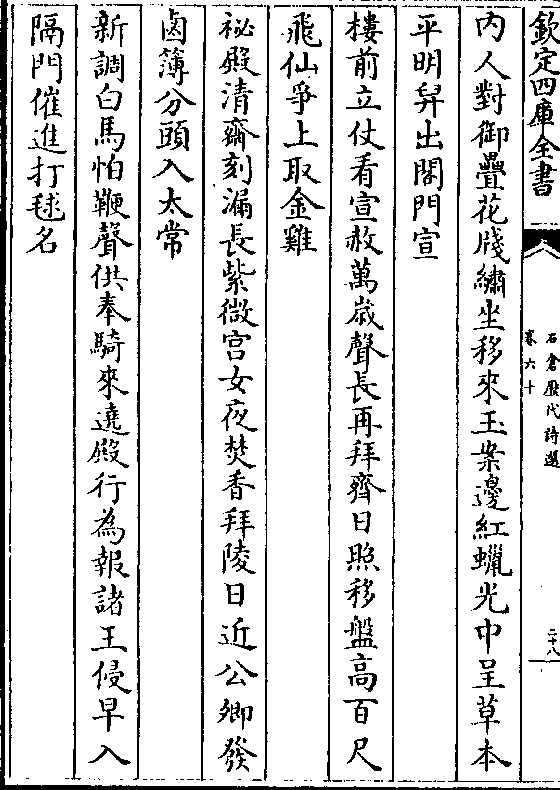 欽定四庫全書
石倉歴代詩選
卷六十
二十八
内人對御疊花牋繡坐移來玉案邊紅蠟光中呈草本
平明舁出閣門宣
樓前立仗看宣赦萬歳聲長再拜齊日照移盤高百尺
飛仙爭上取金雞
祕殿清齋刻漏長紫微宫女夜焚香拜陵日近公卿發
鹵簿分頭入太常
新調白馬怕鞭聲供奉騎來遶殿行為報諸王侵早入
隔門催進打毬名